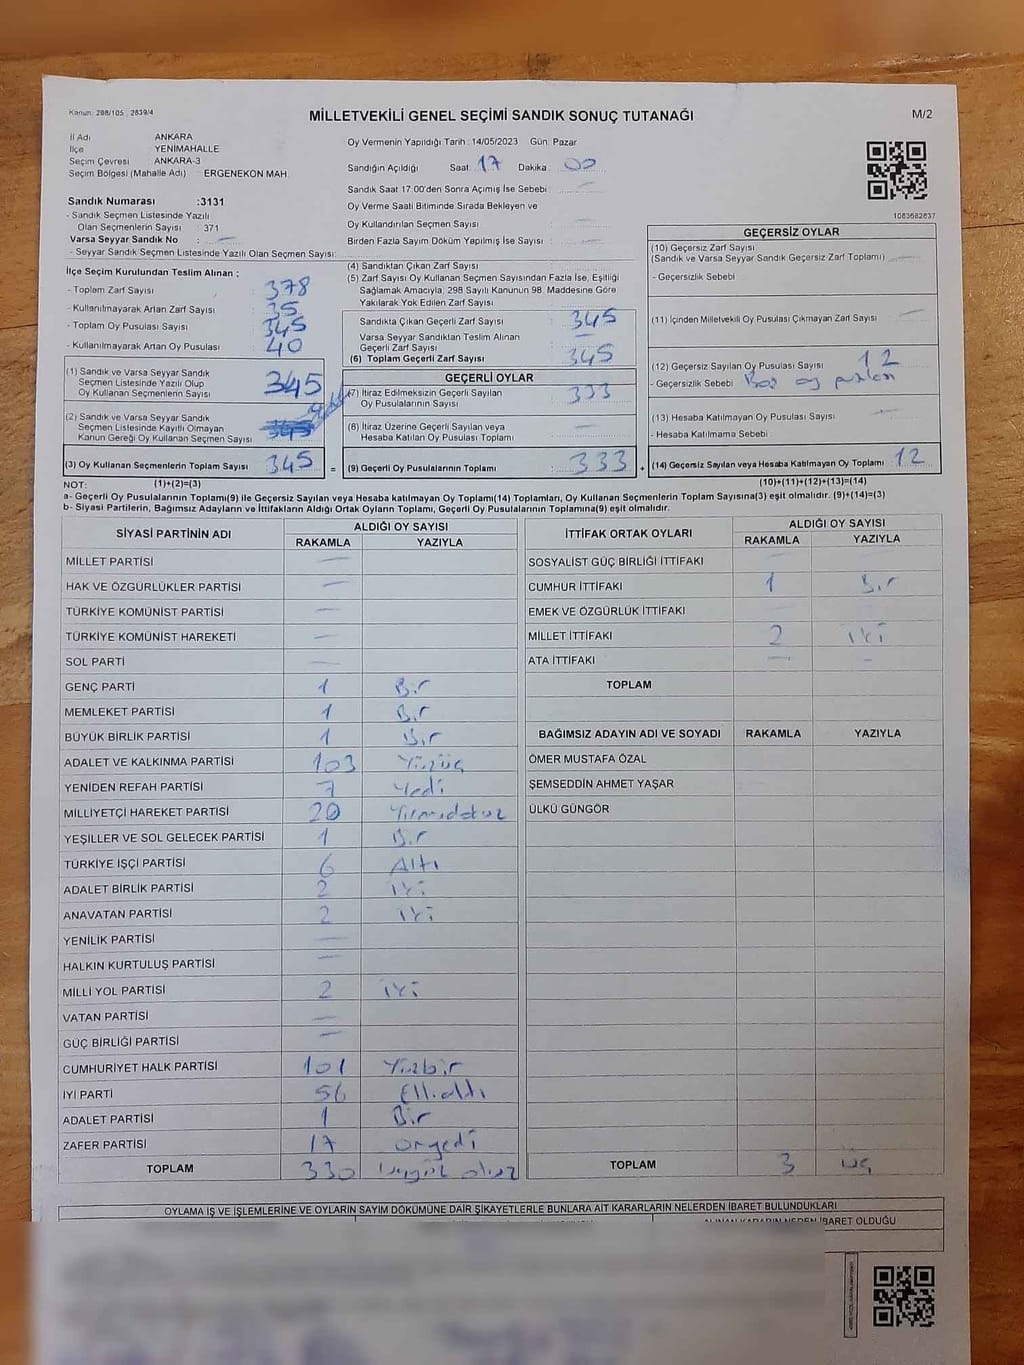 Kanun: 298/105, 2839/4
MİLLETVEKİLİ GENEL SEÇİMİ SANDIK SONUÇ TUTANAĞI
M/2
İl Adı ANKARA
İlçe YENİMAHALLE
Seçim Çevresi ANKARA-3
Seçim Bölgesi (Mahalle Adı) : ERGENEKON MAH.
Sandık Numarası :3131
- Sandık Seçmen Listesinde Yazılı
Olan Seçmenlerin Sayısı : 371
Varsa Seyyar Sandık No : —
- Seyyar Sandık Seçmen Listesinde Yazılı Olan Seçmen Sayısı:
Oy Vermenin Yapıldığı Tarih : 14/05/2023 Gün: Pazar
Sandığın Açıldığı Saat: 17 Dakika : 00
Sandık Saat 17.00'den Sonra Açımış İse Sebebi : —
Oy Verme Saati Bitiminde Sırada Bekleyen ve
Oy Kullandırılan Seçmen Sayısı : —
Birden Fazla Sayım Döküm Yapılmış İse Sayısı : —
1083682837
İlçe Seçim Kurulundan Teslim Alınan :
- Toplam Zarf Sayısı : 378
- Kullanılmayarak Artan Zarf Sayısı : 35
- Toplam Oy Pusulası Sayısı : 345
- Kullanılmayarak Artan Oy Pusulası : 40
(1) Sandık ve Varsa Seyyar Sandık
Seçmen Listesinde Yazılı Olup
Oy Kullanan Seçmenlerin Sayısı : 345
(2) Sandık ve Varsa Seyyar Sandık
Seçmen Listesinde Kayıtlı Olmayan
Kanun Gereği Oy Kullanan Seçmen Sayısı :
(3) Oy Kullanan Seçmenlerin Toplam Sayısı : 345 =
(4) Sandıktan Çıkan Zarf Sayısı :
(5) Zarf Sayısı Oy Kullanan Seçmen Sayısından Fazla İse, Eşitliği
Sağlamak Amacıyla, 298 Sayılı Kanunun 98. Maddesine Göre
Yakılarak Yok Edilen Zarf Sayısı :
Sandıkta Çıkan Geçerli Zarf Sayısı : 345
Varsa Seyyar Sandıktan Teslim Alınan
Geçerli Zarf Sayısı : —
(6) Toplam Geçerli Zarf Sayısı : 345
GEÇERLİ OYLAR
(7) İtiraz Edilmeksizin Geçerli Sayılan
Oy Pusulalarının Sayısı : 333
(8) İtiraz Üzerine Geçerli Sayılan veya
Hesaba Katılan Oy Pusulası Toplamı : —
(9) Geçerli Oy Pusulalarının Toplamı : 333 +
GEÇERSİZ OYLAR
(10) Geçersiz Zarf Sayısı
(Sandık ve Varsa Seyyar Sandık Geçersiz Zarf Toplamı) : —
- Geçersizlik Sebebi
(11) İçinden Milletvekili Oy Pusulası Çıkmayan Zarf Sayısı : —
(12) Geçersiz Sayılan Oy Pusulası Sayısı : 12
- Geçersizlik Sebebi Boş oy pusulası
(13) Hesaba Katılmayan Oy Pusulası Sayısı : —
- Hesaba Katılmama Sebebi
(14) Geçersiz Sayılan veya Hesaba Katılmayan Oy Toplamı : 12
NOT: (1)+(2)=(3) (10)+(11)+(12)+(13)=(14)
a- Geçerli Oy Pusulalarının Toplamı(9) ile Geçersiz Sayılan veya Hesaba katılmayan Oy Toplamı(14) Toplamları, Oy Kullanan Seçmenlerin Toplam Sayısına(3) eşit olmalıdır. (9)+(14)=(3)
b- Siyasi Partilerin, Bağımsız Adayların ve İttifakların Aldığı Ortak Oyların Toplamı, Geçerli Oy Pusulalarının Toplamına(9) eşit olmalıdır.
SİYASİ PARTİNİN ADI ALDIĞI OY SAYISI
RAKAMLA YAZIYLA
MİLLET PARTİSİ —
HAK VE ÖZGÜRLÜKLER PARTİSİ —
TÜRKİYE KOMÜNİST PARTİSİ —
TÜRKİYE KOMÜNİST HAREKETİ —
SOL PARTİ —
GENÇ PARTİ 1 Bir
MEMLEKET PARTİSİ 1 Bir
BÜYÜK BİRLİK PARTİSİ 1 Bir
ADALET VE KALKINMA PARTİSİ 103 Yüzüç
YENİDEN REFAH PARTİSİ 7 Yedi
MİLLİYETÇİ HAREKET PARTİSİ 29 Yirmidokuz
YEŞİLLER VE SOL GELECEK PARTİSİ 1 Bir
TÜRKİYE İŞÇİ PARTİSİ 6 Altı
ADALET BİRLİK PARTİSİ 2 iki
ANAVATAN PARTİSİ 2 iki
YENİLİK PARTİSİ —
HALKIN KURTULUŞ PARTİSİ —
MİLLİ YOL PARTİSİ 2 iki
VATAN PARTİSİ —
GÜÇ BİRLİĞİ PARTİSİ —
CUMHURİYET HALK PARTİSİ 101 Yüzbir
İYİ PARTİ 56 Ellialtı
ADALET PARTİSİ 1 Bir
ZAFER PARTİSİ 17 onyedi
TOPLAM 330 üçyüz otuz
İTTİFAK ORTAK OYLARI ALDIĞI OY SAYISI
RAKAMLA YAZIYLA
SOSYALİST GÜÇ BİRLİĞİ İTTİFAKI
CUMHUR İTTİFAKI 1 Bir
EMEK VE ÖZGÜRLÜK İTTİFAKI
MİLLET İTTİFAKI 2 iki
ATA İTTİFAKI — —
TOPLAM
BAĞIMSIZ ADAYIN ADI VE SOYADI RAKAMLA YAZIYLA
ÖMER MUSTAFA ÖZAL
ŞEMSEDDİN AHMET YAŞAR
ÜLKÜ GÜNGÖR
TOPLAM 3 üç
OYLAMA İŞ VE İŞLEMLERİNE VE OYLARIN SAYIM DÖKÜMÜNE DAİR ŞİKAYETLERLE BUNLARA AİT KARARLARIN NELERDEN İBARET BULUNDUKLARI
ALINAN KARARIN NEDEN İBARET OLDUĞU